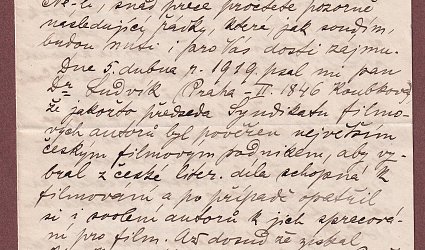 Ne-li, snad přece pročtete pozorně
následující řádky, které jak soudím,
budou míti i pro Vás dosti zájmu.
Dne 5. dubna r. 1919 psal mi pan
Dr Ludvík (Praha-II. 1846
že jakožto předseda Syndikatu filmo-
vých autorů byl pověřen největším
českým filmovým podnikem, aby vy-
bral z české liter. díla schopná k
filmování a po případě opatřil
si i svolení autorů k jich spracová-
ní pro film. Až dosud že získal